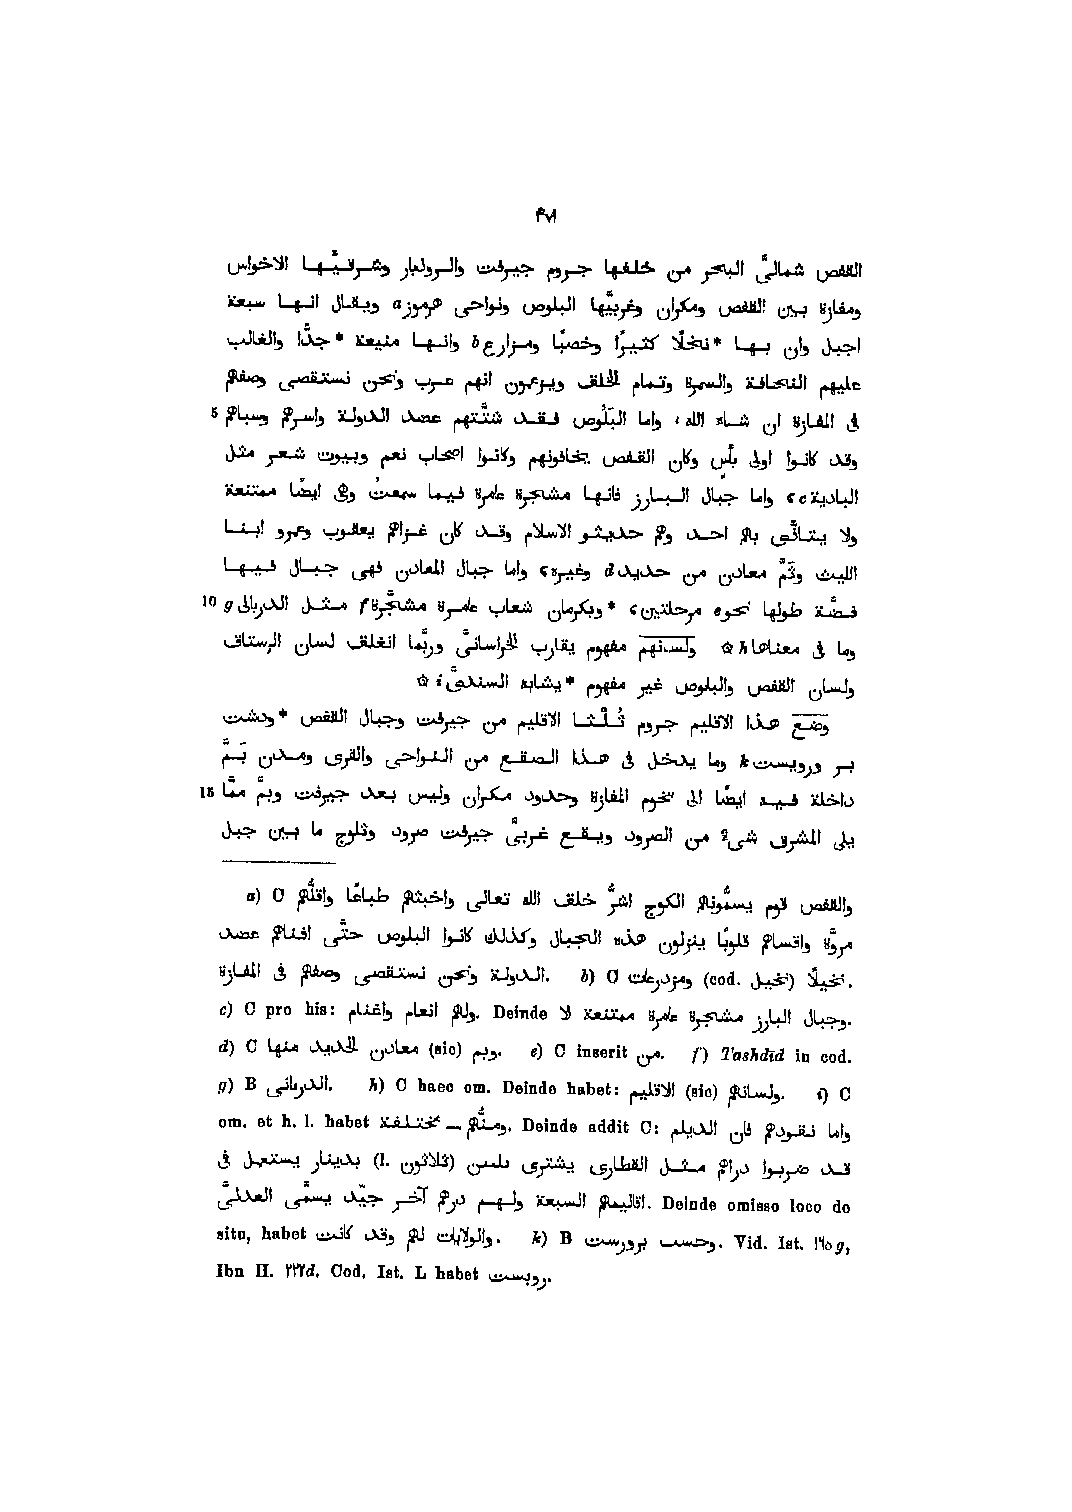 ٤٧١
القفص شمالىَّ البحر من خلفها جروم جيرفت والروذبار وشرقيّها الاخواس
ومفازة بين القفص ومكران وغربيّها البلوص ونواحى هرموز a ويقال انها سبعة
اجبل وان بها *نخلًا كثيرًا وخصبًا ومزارع b وانها منيعة *جدًّا والغالب
عليهم النحافة والسمرة وتمام الخلق ويزعمون انهم عرب ونحن نستقصى وصفهم
5 فى المفازة ان شاء الله، واما البَلُوص فقد شتّتهم عضد الدولة واسرهم وسباهم
وقد كانوا اولى بأس وكان القفص يخافونهم وكانوا اصحاب نعم وبيوت شعر مثل
البادية c، واما جبال البارز فانها مشجرة عامرة فيما سمعتُ وهى ايضًا ممتنعة
ولا يتأذّى بهم احد وهم حديثو الاسلام وقد كان غزاهم يعقوب وعمرو ابنا
الليث وثَمَّ معادن من حديد d وغيره، واما جبال المعادن فهى جبال فيها
10 فضّة طولها نحو e مرحلتين، *وبكرمان شعاب عامرة مشجّرة f مثل الدربائى g
وما فى معناها h ۞ ولسنهم مفهوم يقارب الخراسانىَّ وربّما انغلق لسان الرستاق
ولسان القفص والبلوص غير مفهوم *يشابه السندىَّ i ۞
وضع هذا الاقليم جروم ثُلُثا الاقليم من جيرفت وجبال القفص *ودشت
بر ورويست k وما يدخل فى هذا الصقع من النواحى والقرى ومدن بَمَّ
15 داخلة فيه ايضًا الى تخوم المفازة وحدود مكران وليس بعد جيرفت وبمَّ ممّا
يلى المشرق شىء من الصرود ويقع غربىَّ جيرفت صرود وثلوج ما بين جبل
a) C والقفص قوم يسمُّونهم الكوج اشرُّ خلق الله تعالى واخبثهم طباعًا واقلُّهم
مروَّة واقسام قلوبًا ينزلون هذه الجبال وكذلك كانوا البلوص حتَّى افناهم عضد
الدولة ونحن نستقصى وصفهم فى المفازة. b) C ومزدرعات (cod. نخيل) نخيلًا.
c) C pro his: ولهم انعام واغنام. Deinde وجبال البارز مشجرة عامرة ممتنعة لا.
d) C معادن الحديد منها (sic) وبم. e) C inserit من. f) Tashdīd in cod.
g) B الدربانى. h) C haec om. Deinde habet: ولسانهم (sic) الاقليم. i) C
om. et h. l. habet ومنُّهم — مختلفة. Deinde addit C: واما نقودهم فان الديلم
قد ضربوا دراهم مثل القطارى يشترى (l. ثلاثون) بدينار يستعمل فى
اقاليمهم السبعة ولهم درهم آخر جيّد يسمَّى العدلىَّ. Deinde omisso loco de
situ, habet والولايات لهم وقد كانت. k) B وحسب برورست. Vid. Ist. ١٦٥ g,
Ibn H. ٢٢٢d. Cod. Ist. L habet روبست.